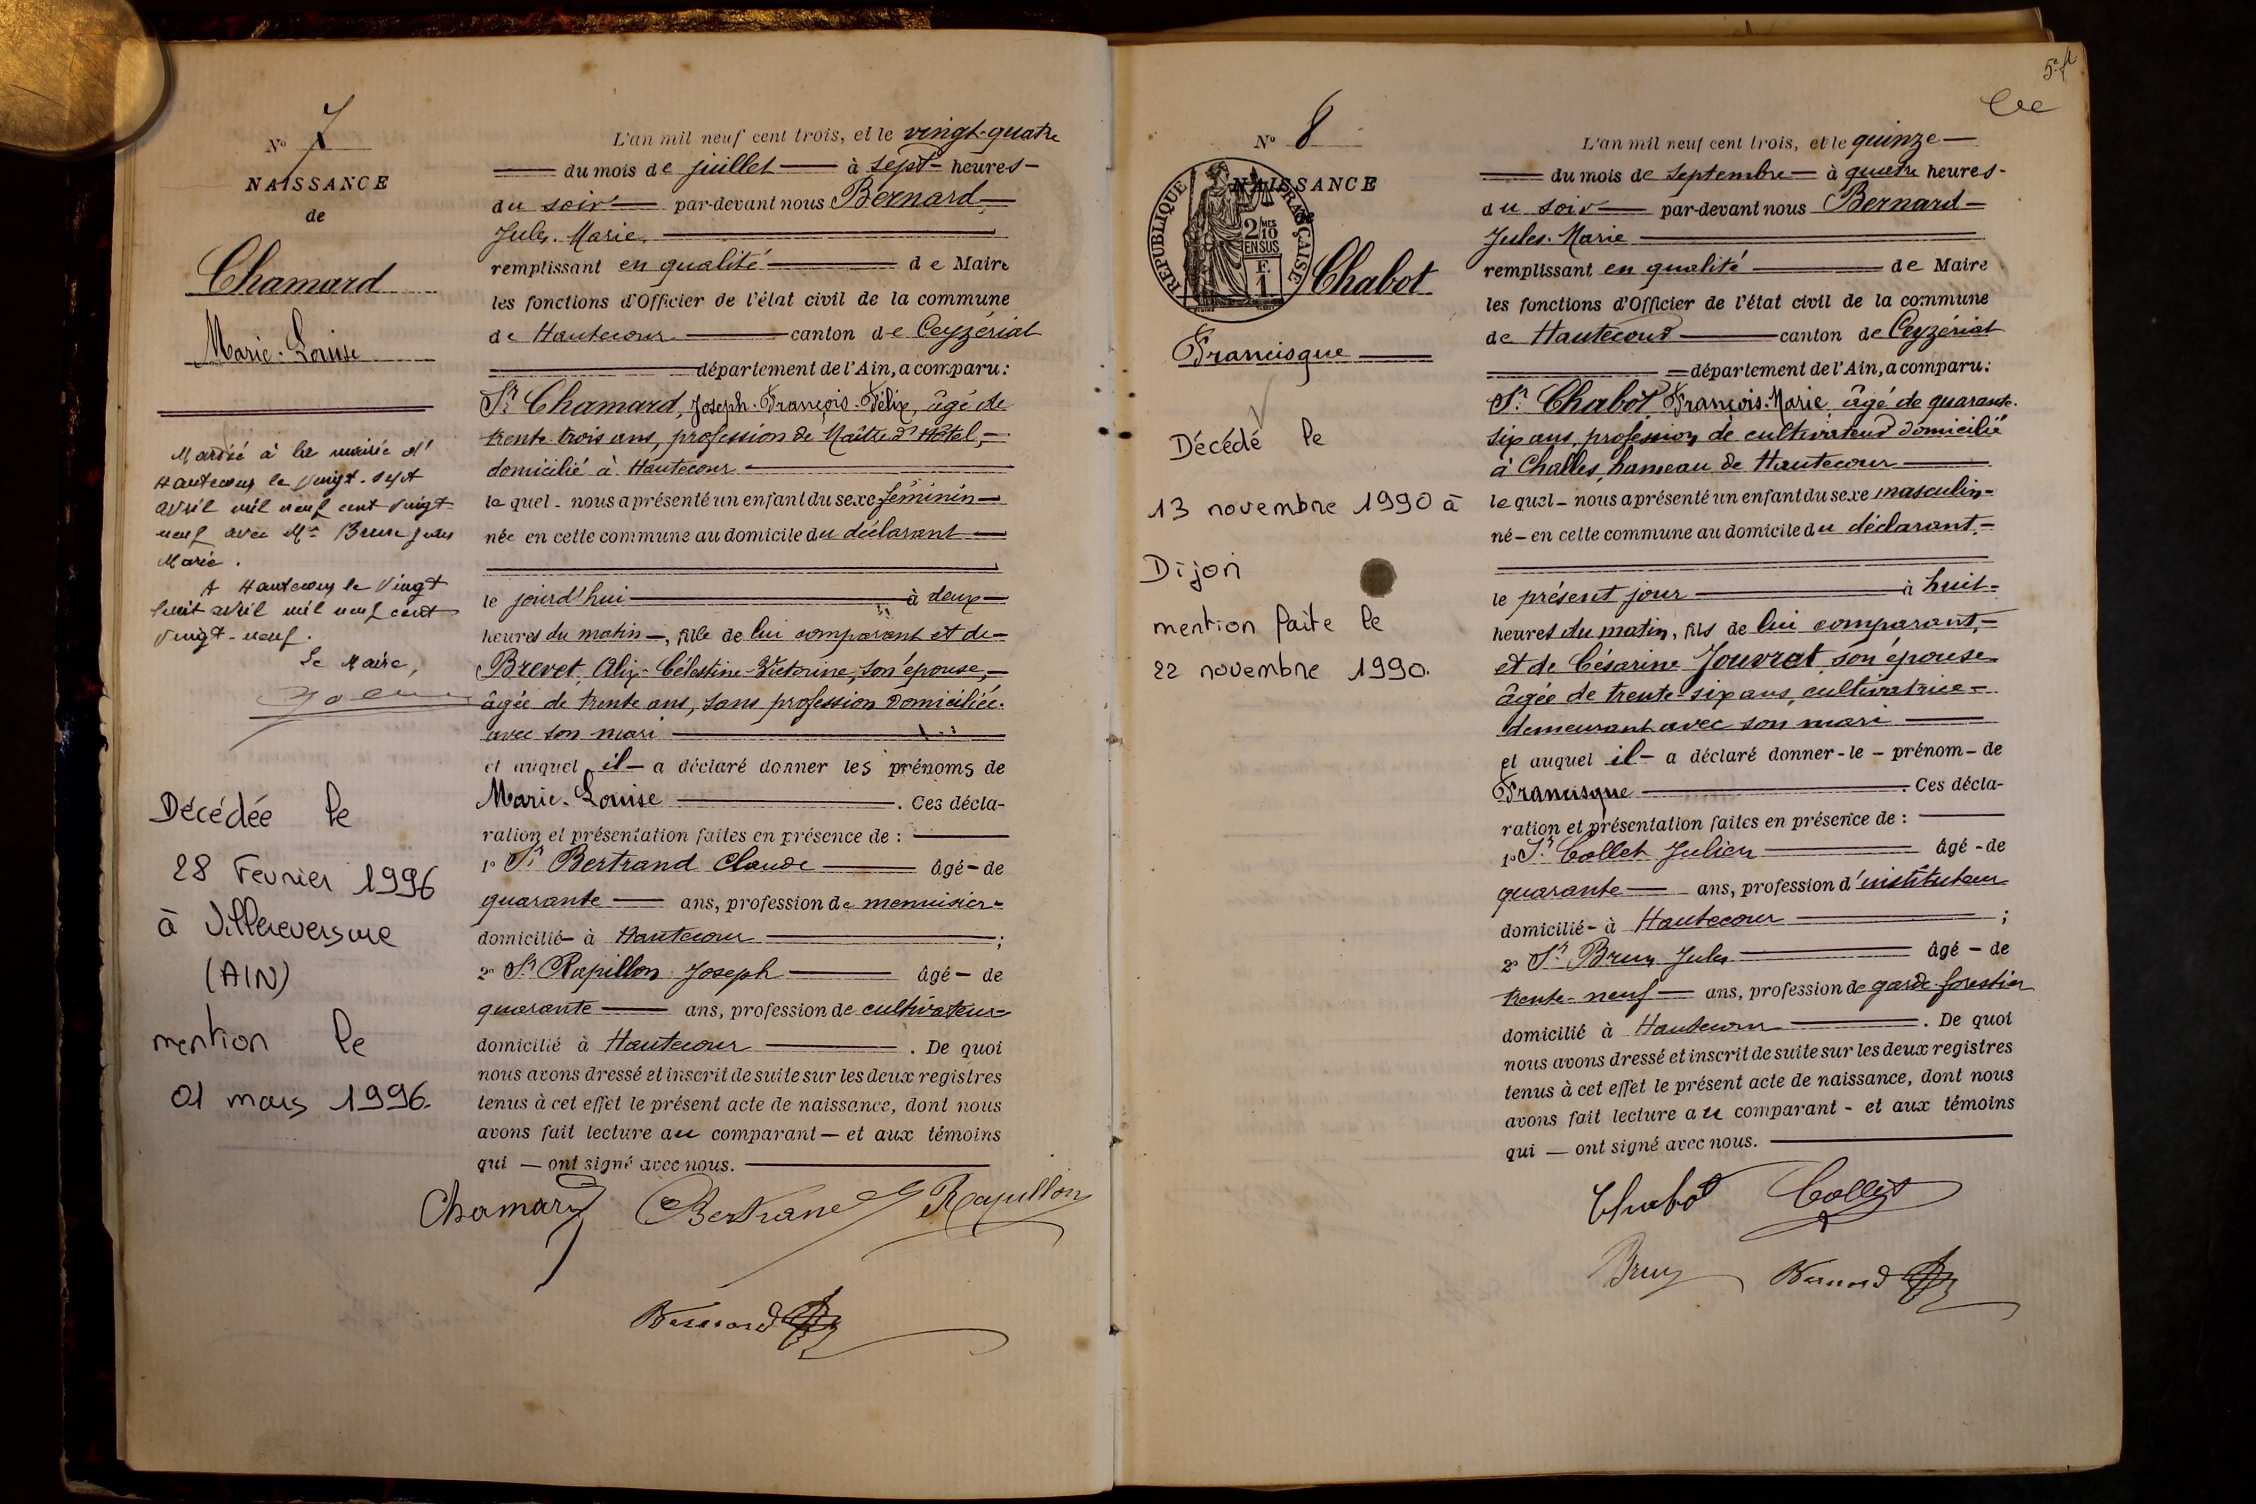 N° 7
NAISSANCE
de
Chamard
Marie-Louise
Marié à la mairie d'
Hautecour le vingt-sept
avril mil neuf cent vingt
neuf avec Mr
Marie.
A Hautecour le vingt
huit avril mil neuf cent
vingt-neuf.
Le Maire,
Décédée le
28 Février 1996
à Villereversure
(AIN)
mention le
01 mars 1996.
L'an mil neuf cent trois, et le vingt-quatre
du mois de juillet à sept heures
du soir par-devant nous Bernard
Jules-Marie
remplissant en qualité de Maire
les fonctions d'Officier de l'état civil de la commune
de Hautecour canton de Ceyzériat
département de l'Ain, a comparu:
Sr Chamard, Joseph-François-Félix, âgé de
trente trois ans, profession de Maître d'Hôtel,
domicilié à Hautecour
lequel nous a présenté un enfant du sexe féminin
née en cette commune au domicile du déclarant
le jourd'hui à deux
heures du matin, fille de lui comparant et de
Brevet, Alix-Célestine-Victorine, son épouse,
âgée de trente ans, sans profession domiciliée
avec son mari
et auquel il a déclaré donner les prénoms de
Marie-Louise. Ces décla-
ration et présentation faites en présence de :
1° Sr Bertrand Claude âgé de
quarante ans, profession de menuisier
domicilié à Hautecour ;
2° Sr Rapillon Joseph âgé de
quarante ans, profession de cultivateur
domicilié à Hautecour. De quoi
nous avons dressé et inscrit de suite sur les deux registres
tenus à cet effet le présent acte de naissance, dont nous
avons fait lecture au comparant et aux témoins
qui ont signé avec nous.
Chamard Bertrand Rapillon
Bernard
5e f
N° 8
NAISSANCE
REPUBLIQUE FRANÇAISE
2/10 EN SUS
F. 1
Chabot
Francisque
Décédé le
13 novembre 1990 à
Dijon
mention faite le
22 novembre 1990.
L'an mil neuf cent trois, et le quinze
du mois de septembre à quatre heures
du soir par-devant nous Bernard
Jules-Marie
remplissant en qualité de Maire
les fonctions d'Officier de l'état civil de la commune
de Hautecour canton de Ceyzériat
département de l'Ain, a comparu:
Sr Chabot François-Marie, âgé de quarante-
six ans, profession de cultivateur domicilié
à Challes, hameau de Hautecour
lequel nous a présenté un enfant du sexe masculin
né en cette commune au domicile du déclarant
le présent jour à huit
heures du matin, fils de lui comparant,
et de Césarine Jouvrat son épouse
âgée de trente-six ans, cultivatrice
demeurant avec son mari
et auquel il a déclaré donner le prénom de
Francisque. Ces décla-
ration et présentation faites en présence de :
1° Sr Collet Julien âgé de
quarante ans, profession d'instituteur
domicilié à Hautecour ;
2° Sr Brun Jules âgé de
trente-neuf ans, profession de garde-forestier
domicilié à Hautecour. De quoi
nous avons dressé et inscrit de suite sur les deux registres
tenus à cet effet le présent acte de naissance, dont nous
avons fait lecture au comparant et aux témoins
qui ont signé avec nous.
Chabot Collet
Brun Bernard